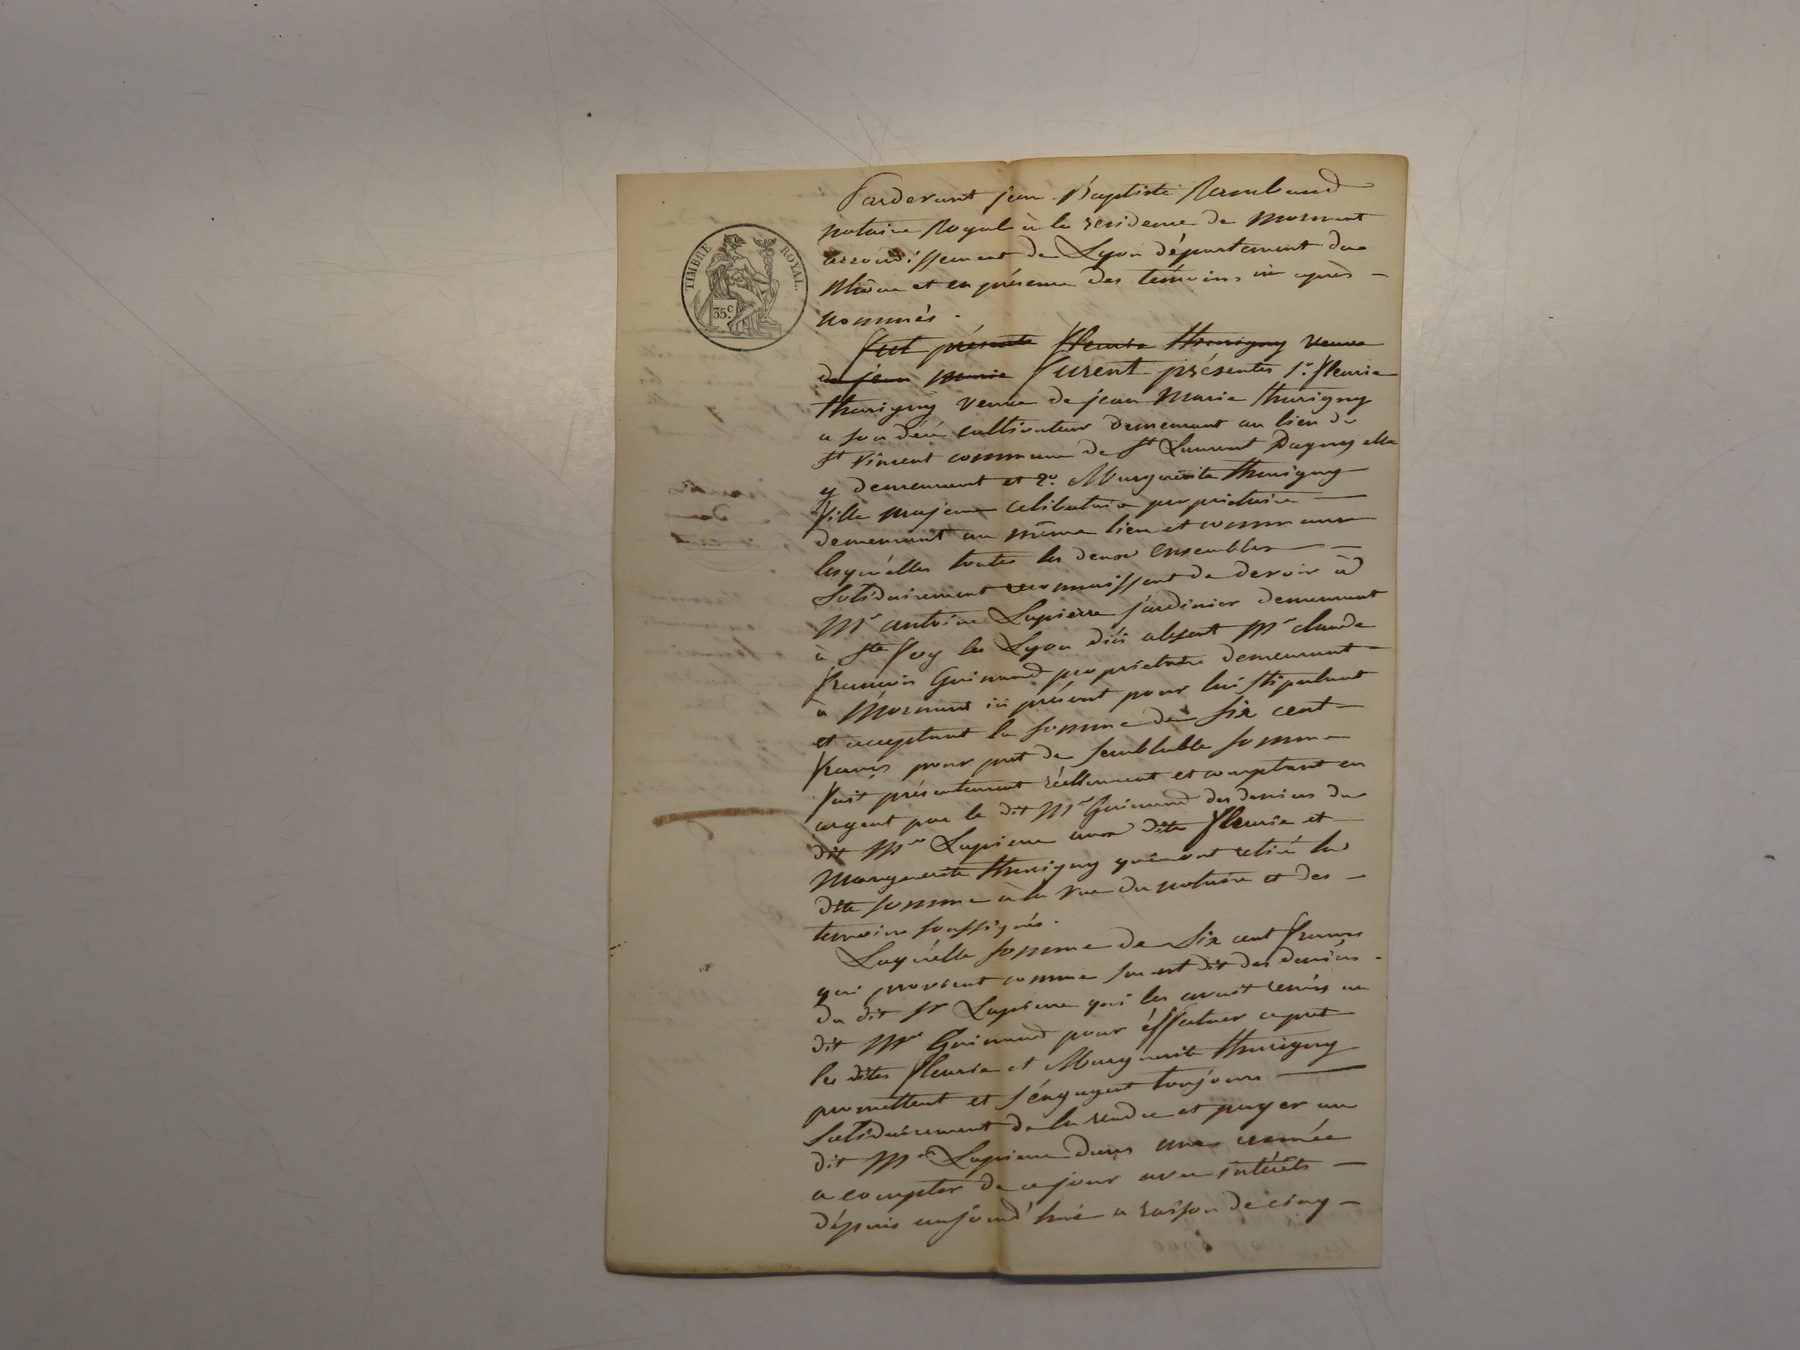 TIMBRE ROYAL.
35 c.
Pardevant jean Baptiste Rambaud
notaire Royal à la residence de Mornant
arrondissement de Lyon département du
Rhône et en présence des témoins ci après
nommés.
fut présente fleurie thivigny veuve
de jean marie furent présentes 1.° fleurie
thivigny veuve de jean Marie thivigny
a son décé cultivateur demeurant au lieu de
st Vincent commune de st Laurent Dagny elle
y demeurant et 2.° Marguerite thivigny
fille majeure celibataire propriétaire
demeurant au même lieu et commune
lesquelles toutes les deux ensembles
solidairement reconnaissent de devoir à
Mr antoine Lapierre jardinier demeurant
à ste foy les Lyon d'ici absent Mr claude
francois Guinand propriétaire demeurant
a Mornant ici présent pour lui stipulant
et acceptant la somme de six cent
francs pour pret de semblable somme
fait présentement réellement et comptant en
argent par le dit Mr Guinand des deniers du
dit Mr Lapierre aux dite fleurie et
Marguerite thivigny qui ont retiré la
dite somme à la vue du notaire et des
temoins soussignés.
Laquelle somme de six cent francs
qui provient comme sus est dit des deniers
du dit sr Lapierre qui les avait remis au
dit Mr Guinand pour éffectuer ce pret
les dites fleurie et Marguerite thivigny
promettent et s'engagent toujours
solidairement de la rendre et payer au
dit Mr Lapierre dans une année
a compter de ce jour avec intérêts
dépuis aujourd'hui a raison de cinq